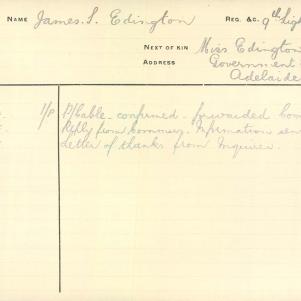 NAME James. S. Edington REG. &C. 9th Lig
NEXT OF KIN Miss Edington
ADDRESS Government
Adelaide
1/P P/Cable confirmed. forwarded Com
Reply from Commrs. Information sen
Letter of thanks from Inquirer.